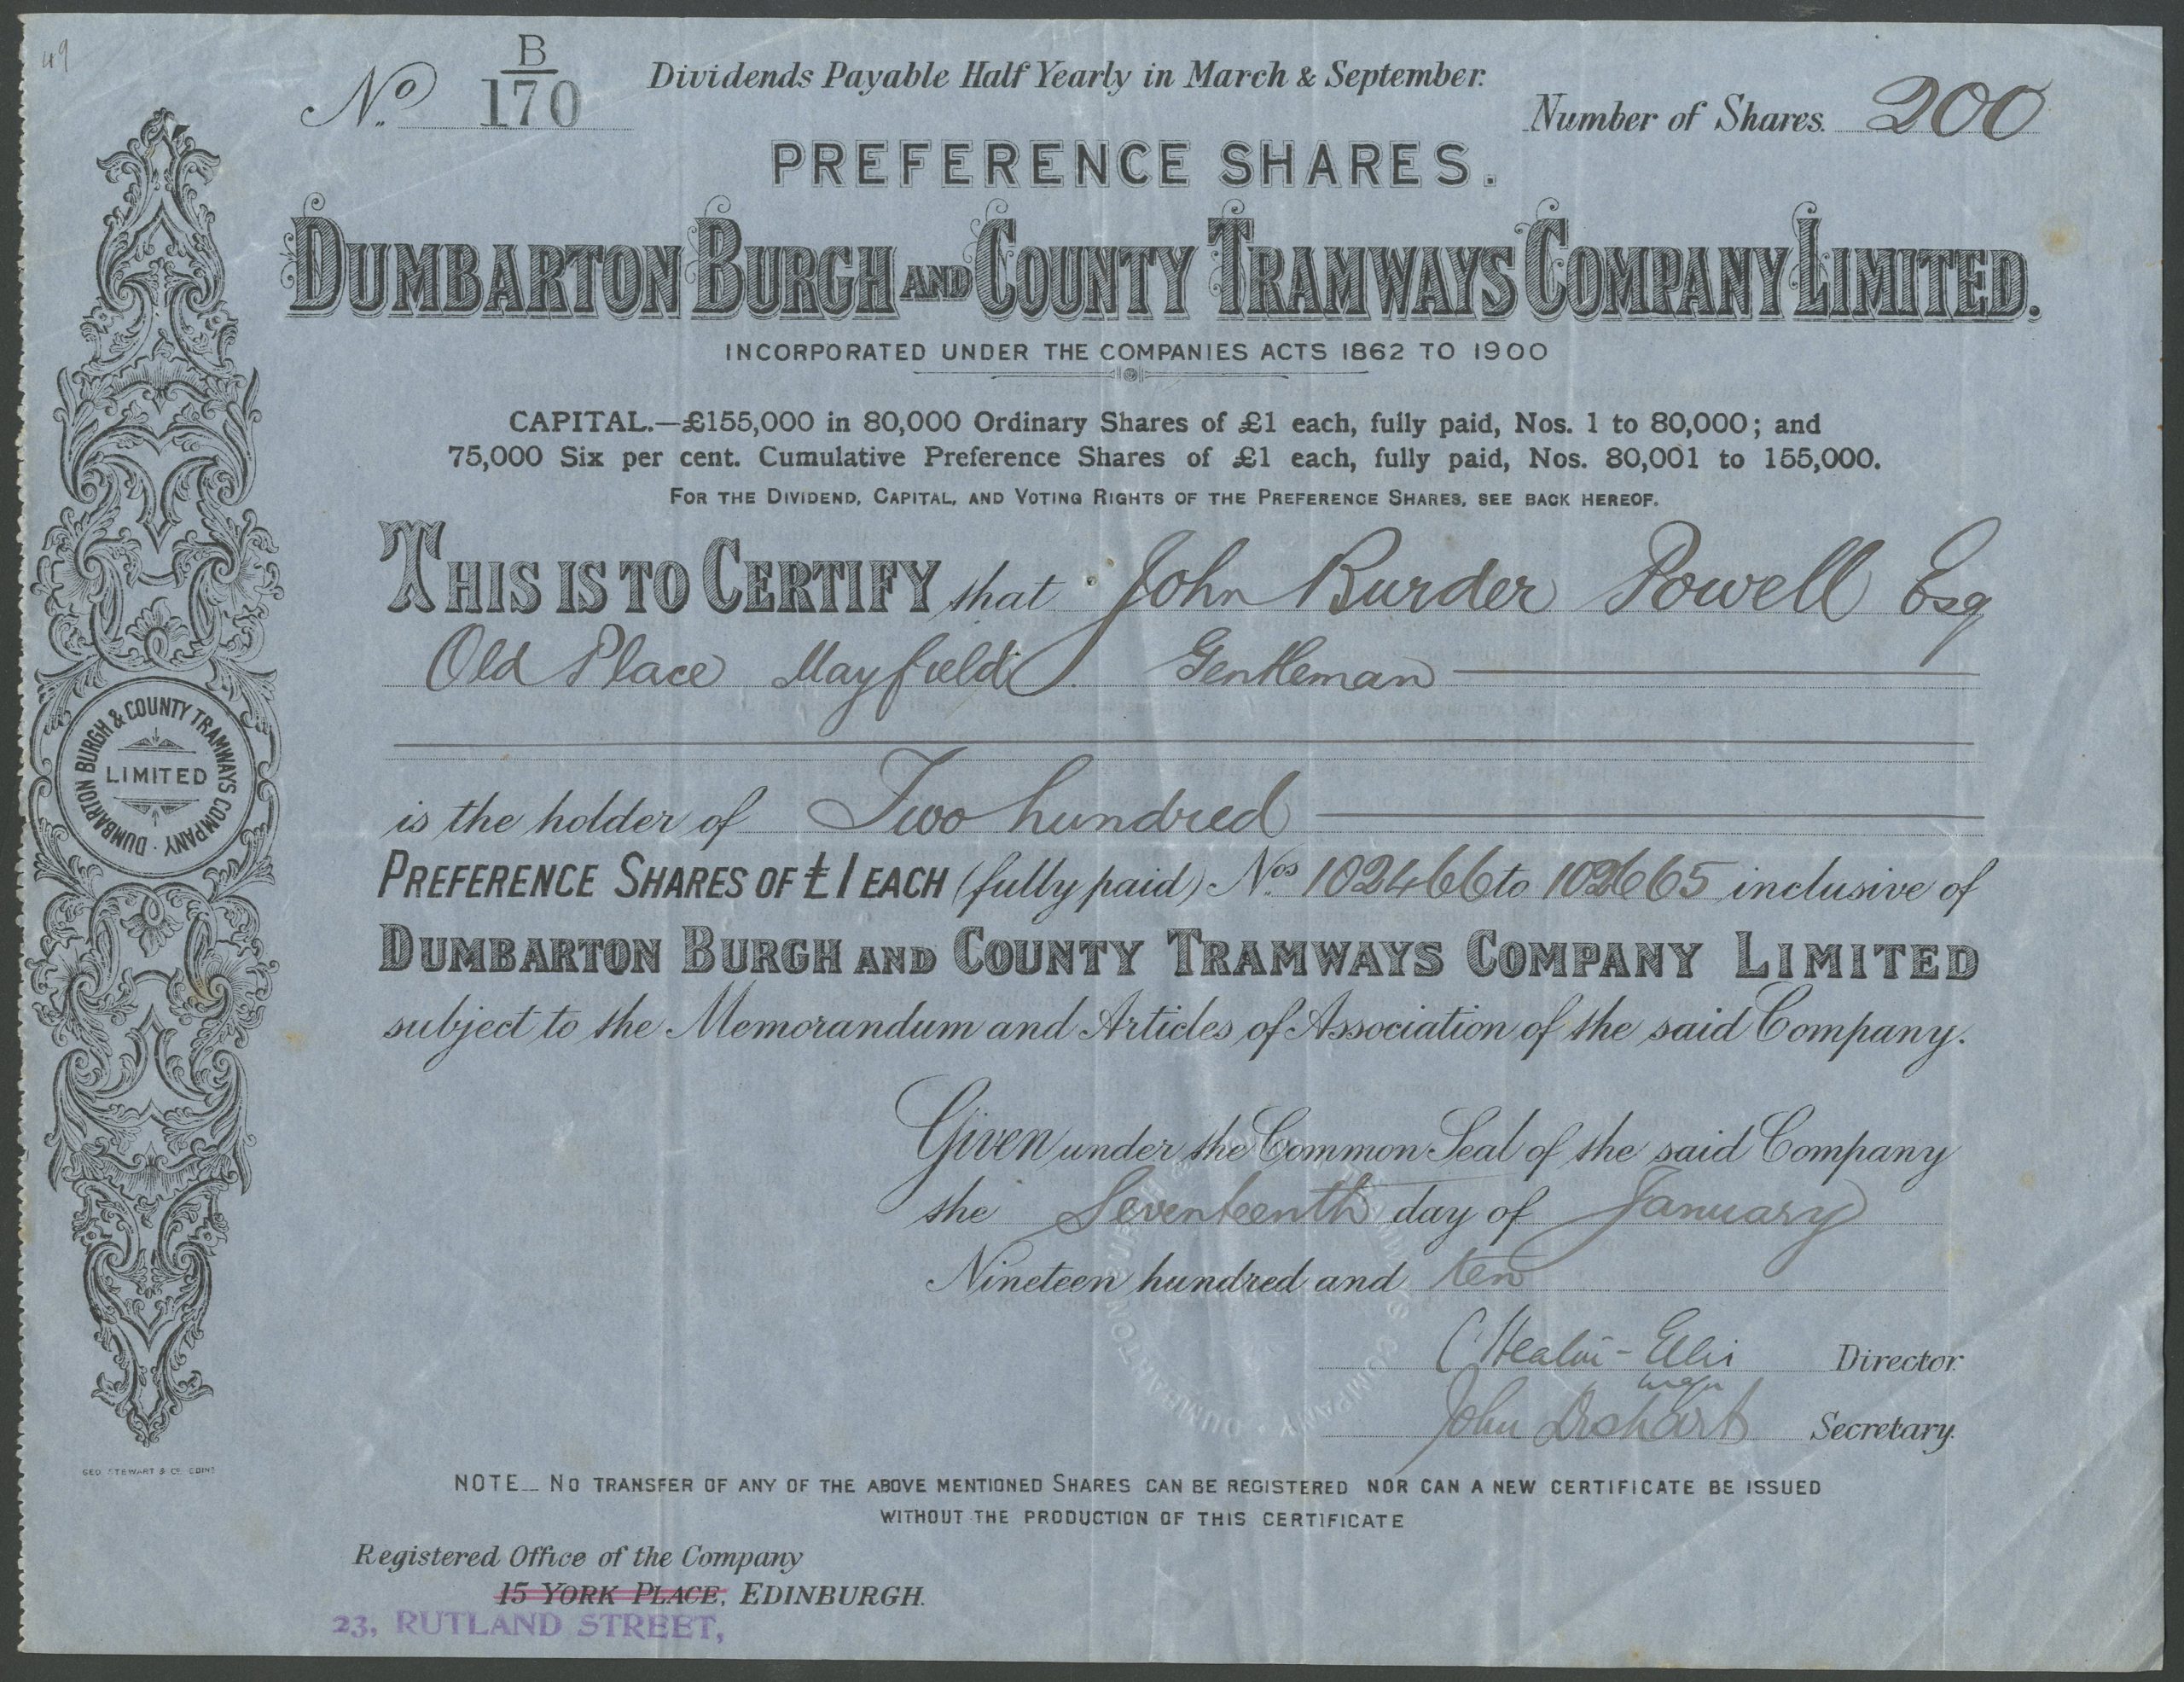 49
No. B
170
Dividends Payable Half Yearly in March & September.
Number of Shares. 200
PREFERENCE SHARES.
DUMBARTON BURGH AND COUNTY TRAMWAYS COMPANY LIMITED.
INCORPORATED UNDER THE COMPANIES ACTS 1862 TO 1900
CAPITAL.—£155,000 in 80,000 Ordinary Shares of £1 each, fully paid, Nos. 1 to 80,000; and
75,000 Six per cent. Cumulative Preference Shares of £1 each, fully paid, Nos. 80,001 to 155,000.
FOR THE DIVIDEND, CAPITAL, AND VOTING RIGHTS OF THE PREFERENCE SHARES, SEE BACK HEREOF.
THIS IS TO CERTIFY that John Burder Powell Esq
Old Place Mayfield. Gentleman
is the holder of Two hundred
PREFERENCE SHARES OF £1 EACH (fully paid) Nos. 102466 to 102665 inclusive of
DUMBARTON BURGH AND COUNTY TRAMWAYS COMPANY LIMITED
subject to the Memorandum and Articles of Association of the said Company.
Given under the Common Seal of the said Company
the Seventeenth day of January
Nineteen hundred and ten
C Heaton-Ellis Director.
John Secretary.
NOTE_ NO TRANSFER OF ANY OF THE ABOVE MENTIONED SHARES CAN BE REGISTERED NOR CAN A NEW CERTIFICATE BE ISSUED
WITHOUT THE PRODUCTION OF THIS CERTIFICATE
Registered Office of the Company
15 YORK PLACE, EDINBURGH.
23, RUTLAND STREET,
DUMBARTON BURGH & COUNTY TRAMWAYS COMPANY ·
LIMITED
GEO. STEWART & CO. EDINR